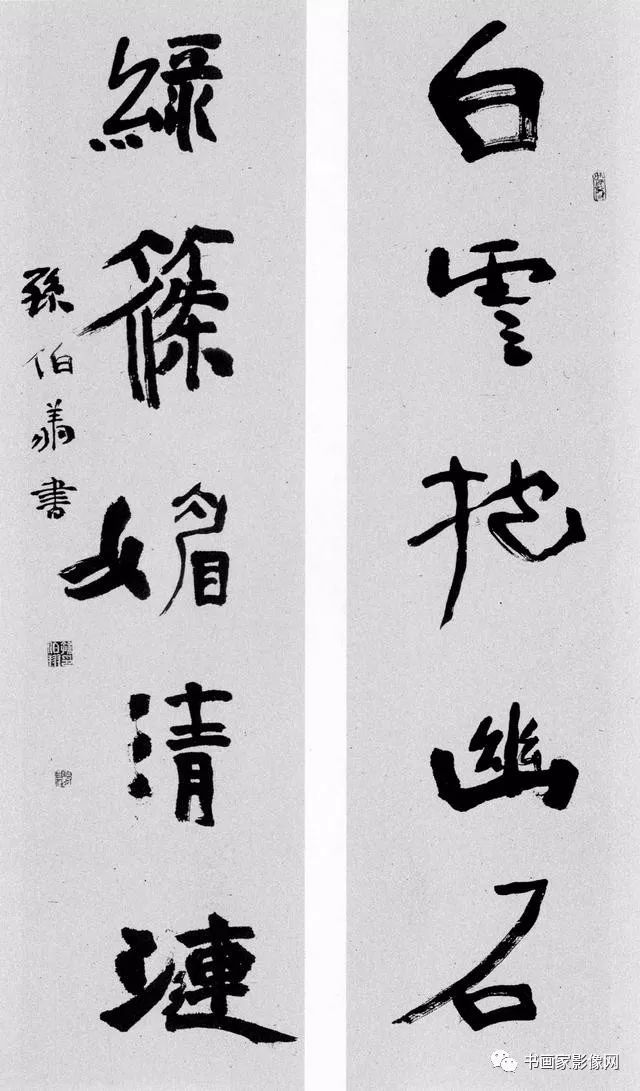 白雲抱幽石
綠篠媚清漣
孫伯翔書
书画家影像网